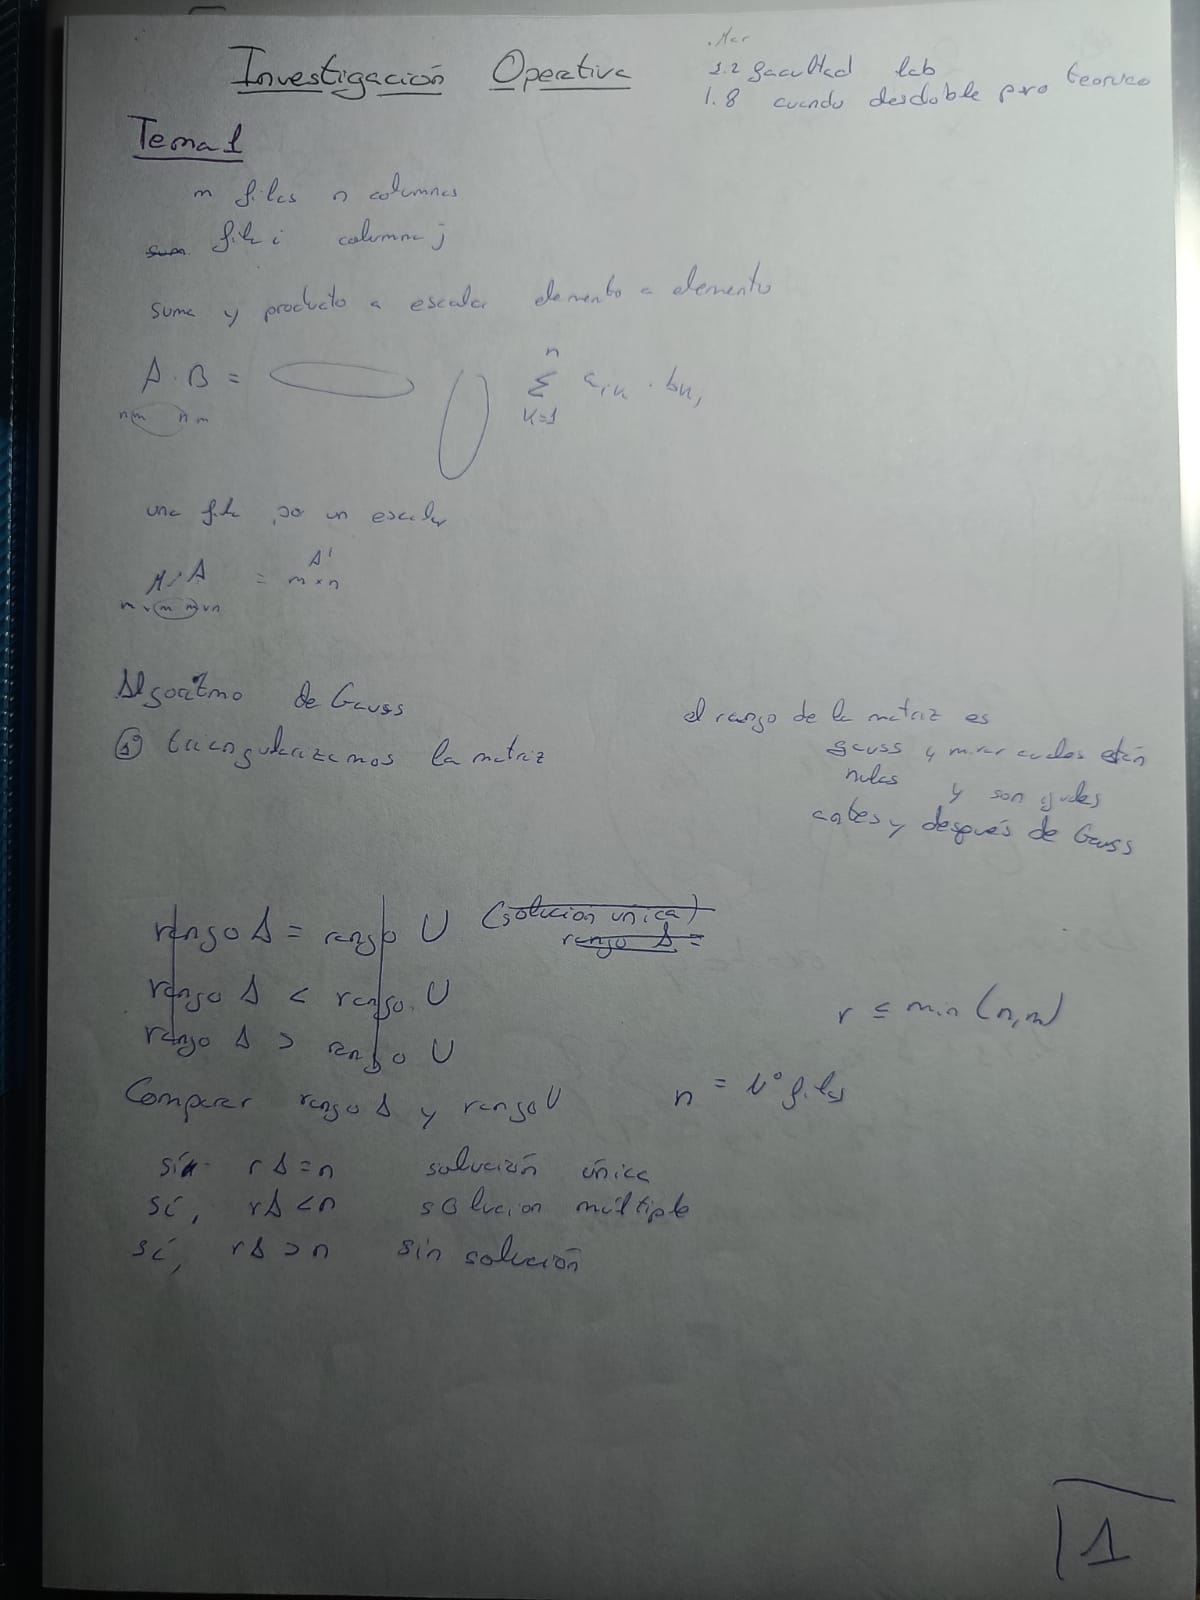 Investigación Operativa
.Mar
1.2 facultad lab
1.8 cuando desdoble pero teorico
Tema 1
m filas n columnas
fila i columna j
suma y producto a escalar elemento a elemento
A · B =
n m n m
n
Σ a_ik · b_k,
k=1
una fila por un escalar
A' 
· A = m × n
m × m m × n
Algoritmo de Gauss
1º triangularizamos la matriz
el rango de la matriz es
gauss y mirar cuales están
nulas y son iguales
antes y después de Gauss
rango A = rango U (solución única)
rango A =
rango A < rango U
rango A > rango U
r ≤ min (n,m)
Comparar rango A y rango U
n = Nº filas
si rA = n solución única
si, rA < n solucion múltiple
si, rA > n sin solución
1